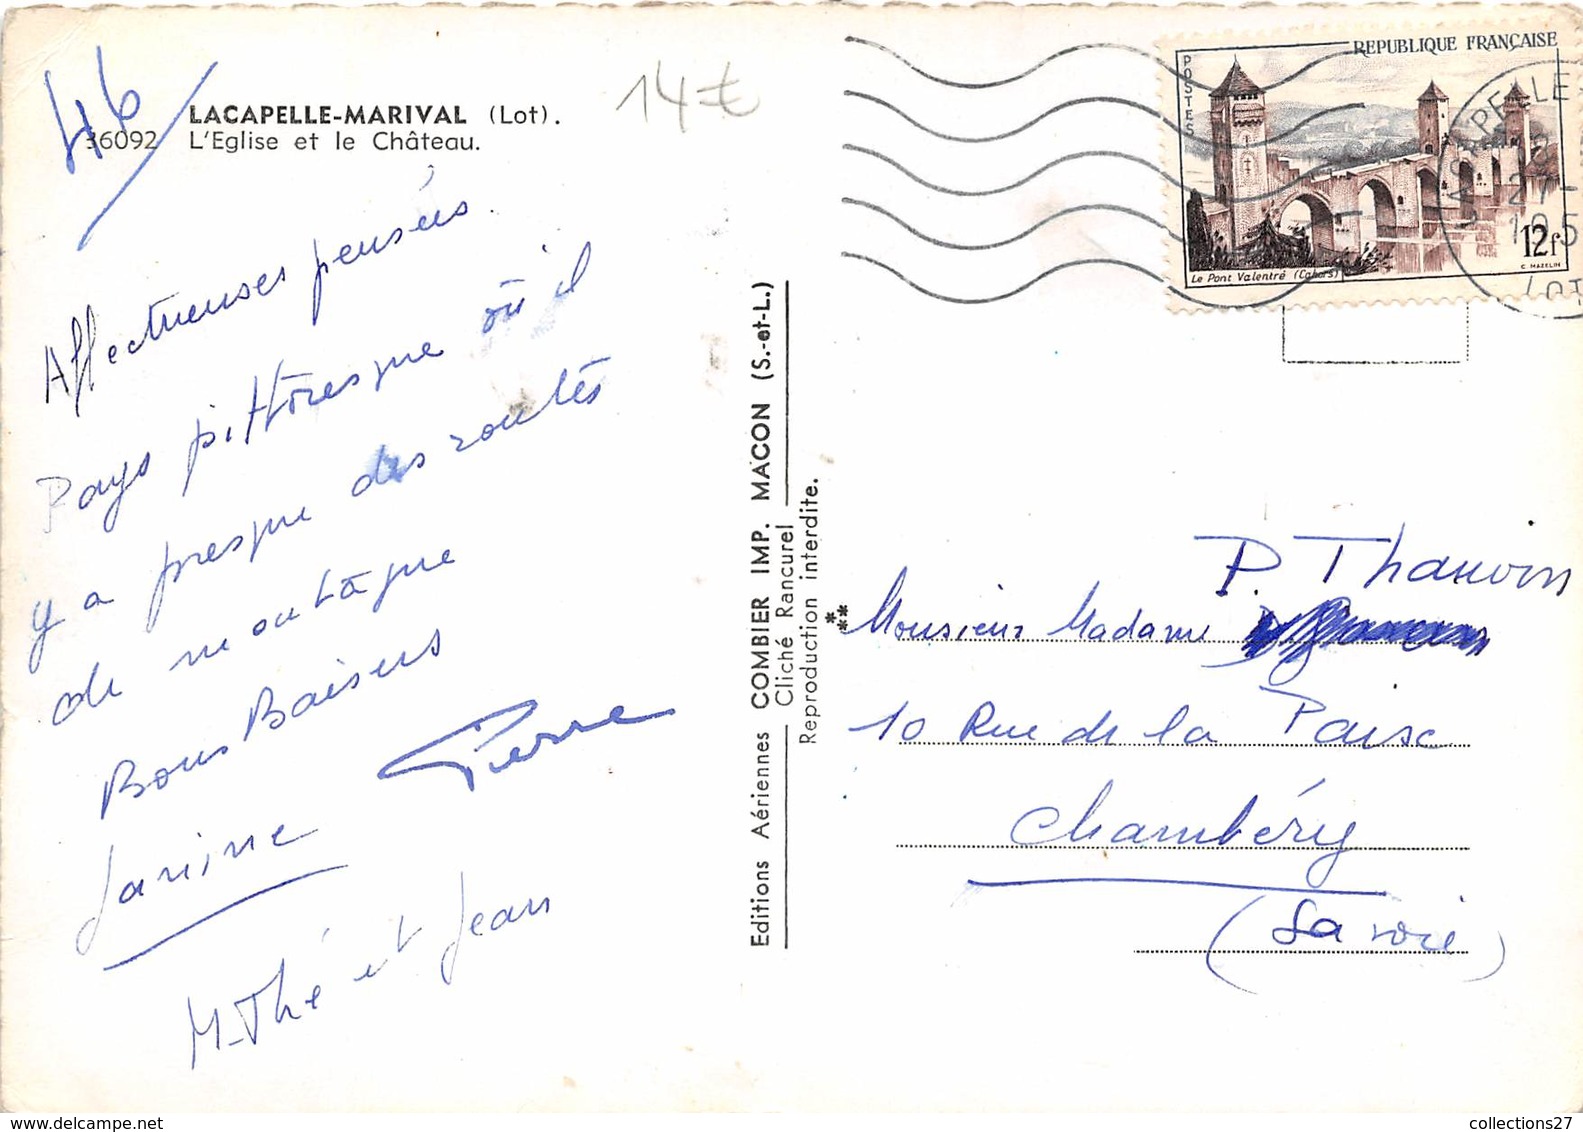 46
LACAPELLE-MARIVAL (Lot).
36092 L'Eglise et le Château.
14€
Affectueuses pensées.
Pays pittoresque où il
y a presque des routes
de montagne
Bons Baisers
Pierre
Janine
M-Thé et Jean
Editions Aériennes COMBIER IMP. MACON (S.-et-L.)
Cliché Rancurel
Reproduction interdite.
REPUBLIQUE FRANÇAISE
POSTES
Le Pont Valentré (Cahors)
12f
C. MAZELIN
LACAPELLE
27-
195
LOT
P. Thauvin
Monsieur Madame
10 Rue de la Paix
Chambéry
(Savoie)
collections27